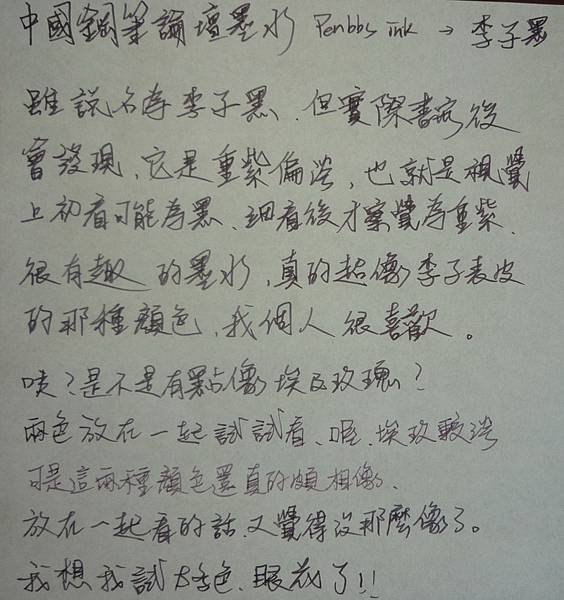 中國鋼筆論壇墨水 Penbbs ink → 李子黑
雖說名為李子黑、但實際書寫後
會發現、它是重紫偏淡，也就是視覺
上初看可能為黑、細看後才察覺為重紫、
很有趣的墨水，真的超像李子表皮
的那種顏色，我個人很喜歡。
咦？是不是有點像埃及玫瑰？
兩色放在一起試試看、喔、埃玫較淡
可是這兩種顏色還真的頗相像、
放在一起看的話、又覺得沒那麼像了。
我想我試太多色、眼花了!!